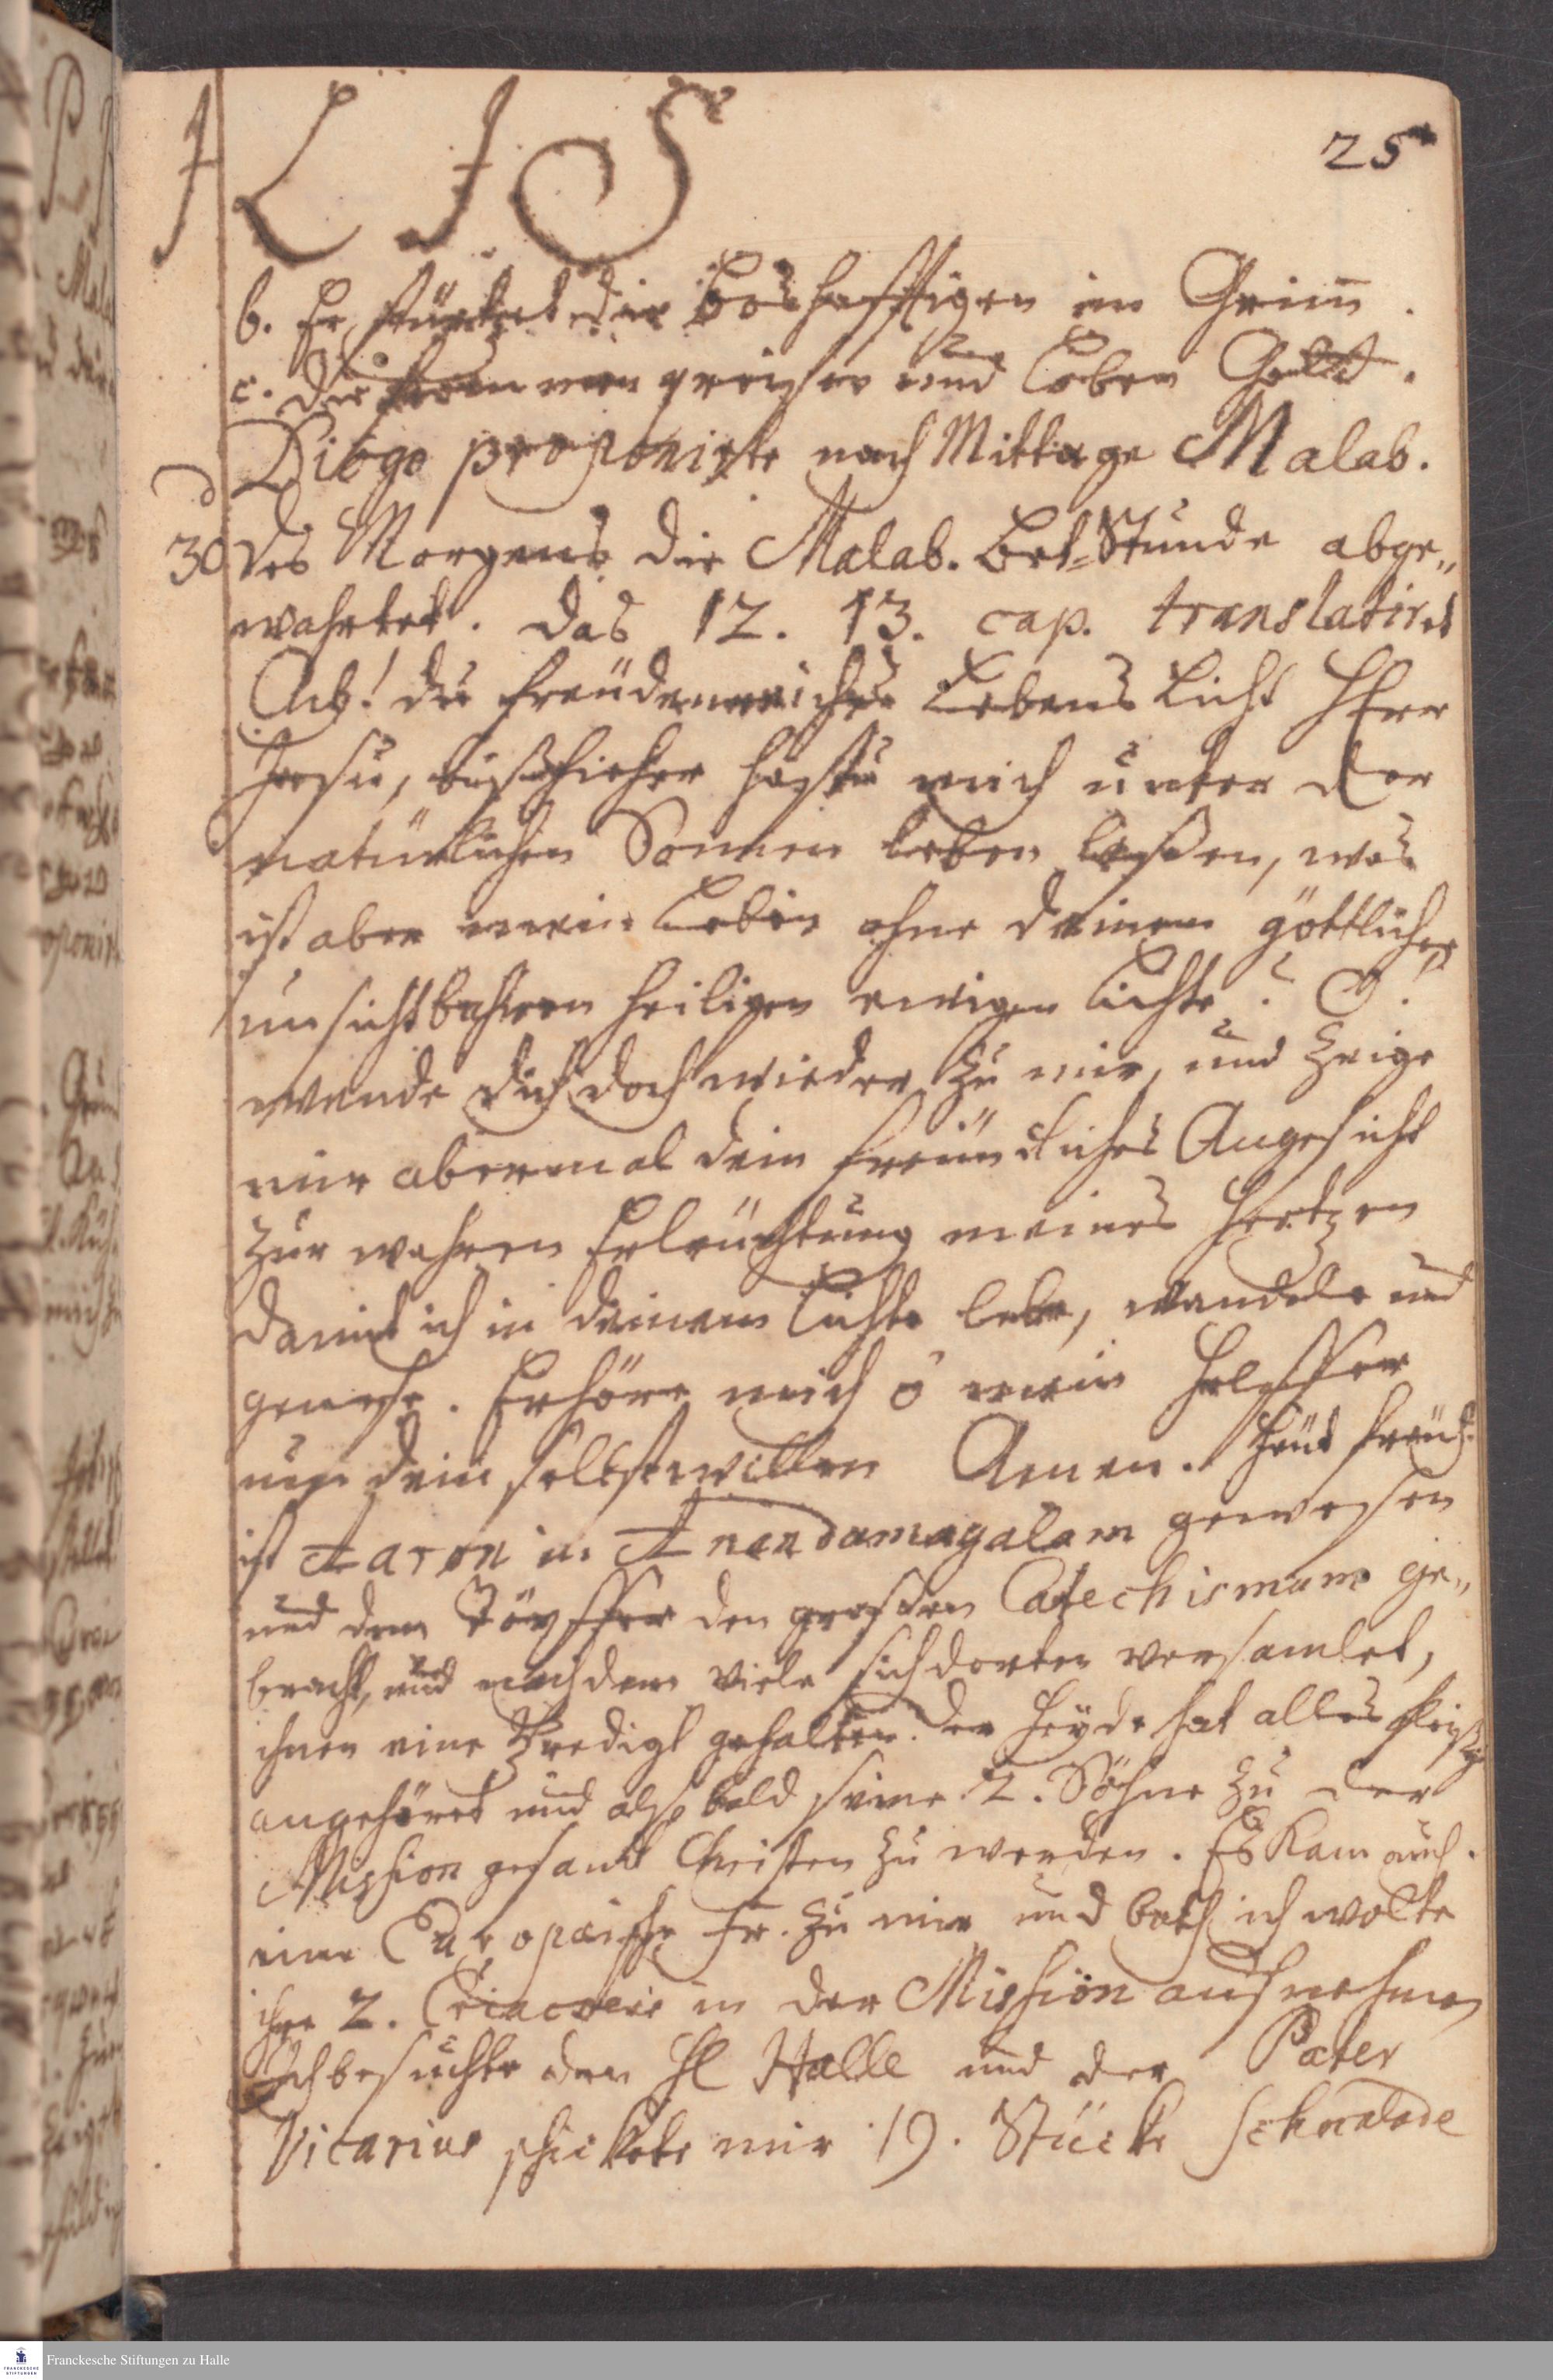 J L I S
25
b. Er stürtzet die boshafftigen im Grim̄.
c. die frommen preisen und loben Gott.
Diogo proponirte nach Mittage Malab.
30 Des Morgens die Malab. Bet-Stunde abge„
wahrtet. das 12. 13. cap. translatiret
Ach! du freudenreiches Lebens Licht HErr
Jesu, bißhieher hastu mich unter der
natürlichen Sonnen leben lassen, was
ist aber mein Leben ohne deinem göttlichen
unsichtbahren heiligen ewigen Lichte? O!
wende dich doch wieder zu mir, und zeige
mir abermal dein freündliches Angesicht
zur wahren Erleuchtung meines Hertzen
damit ich in deinem Lichte lebe, wandele und
genese. Erhöre mich ô mein Helffer
um dein selbst willen Amen. Heut
ist Aaron in Anandamagalam gewesen
und dem Töpffer den grossen Catechismum ge„
bracht, und nachdem viele sich dorten versamlet,
ihnen eine Predigt gehalten. Der Heyde hat alles fleißig
angehöret und also bald seine 2. Söhne zu der
Mission gesant Christen zu werden. Es kam auch
eine Europäische Fr. zu mir und bath ich wolte
ihre 2. in der Mission aufnehmen
Ich besuchte den H Halle und der Pater
Vicarius schickete mir 19. Stücke
Franckesche Stiftungen zu Halle